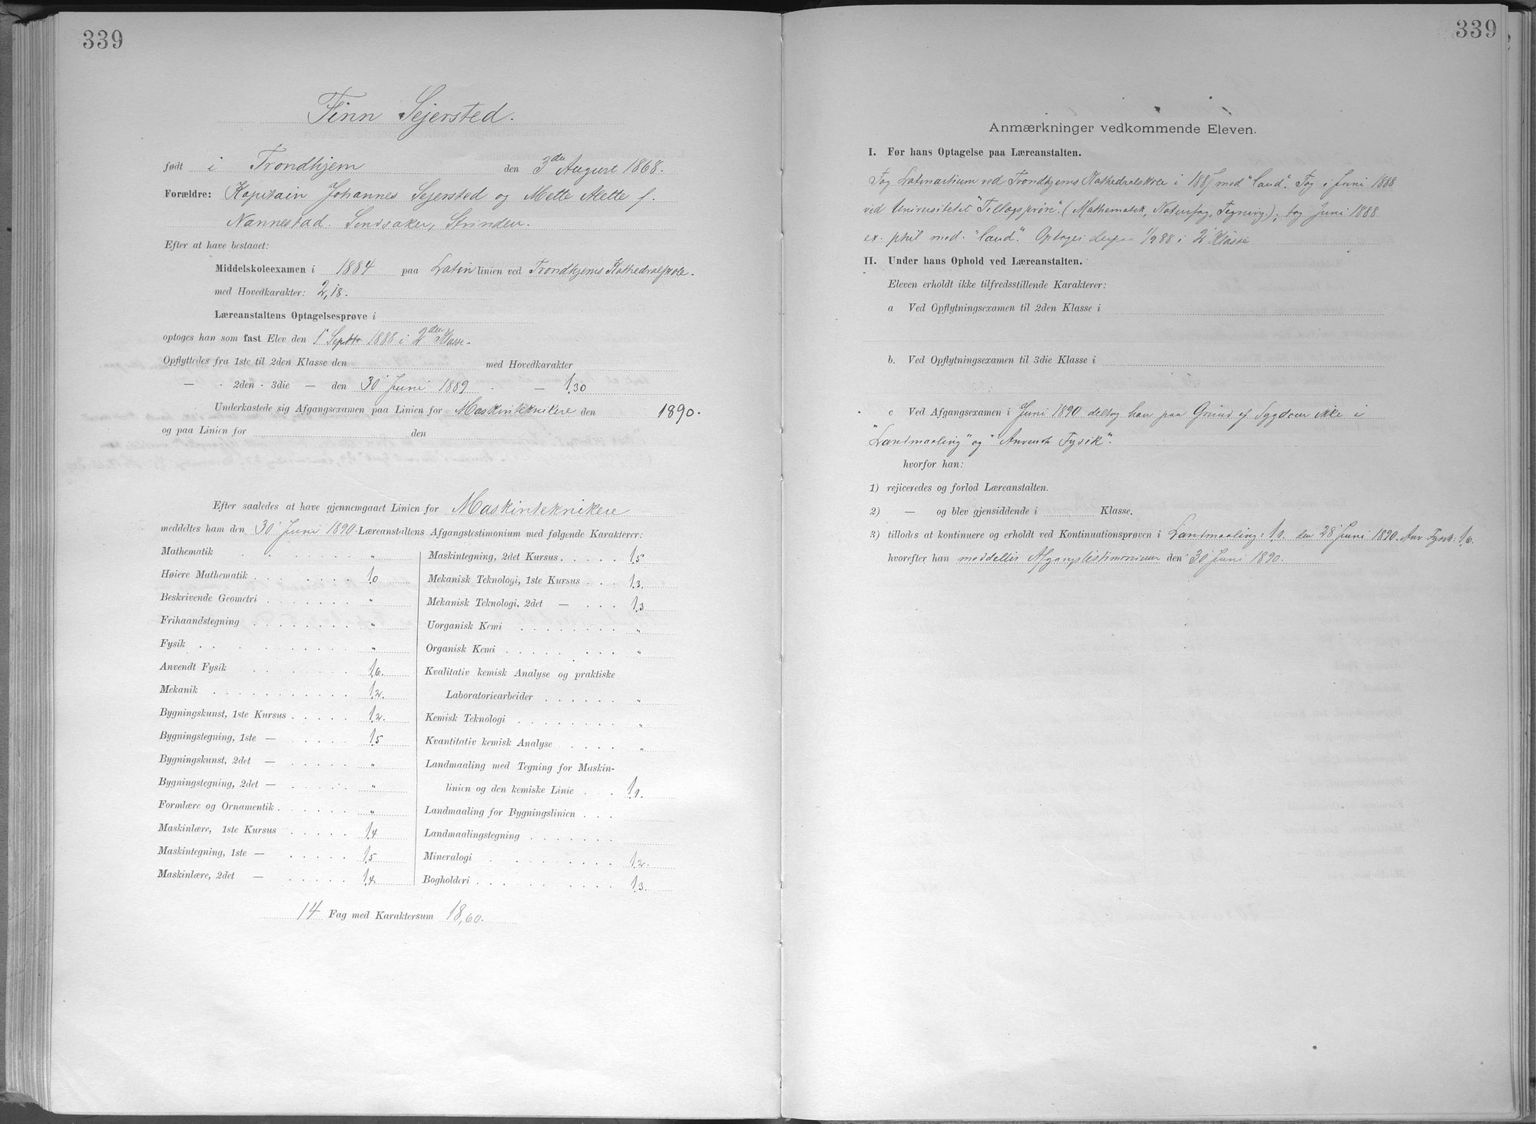 339
Finn Sejersted.
født i Trondhjem den 3die August 1868.
Forældre: Kaptain Johannes Sejersted og Mette Alette f.
Nannestad. Sundsaker, Strinden.
Efter at have bestaaet:
Middelskoleexamen i 1884 paa Latin linien ved Trondhjems Kathedralskole.
med Hovedkarakter: 2,18.
Læreanstaltens Optagelsesprøve i
optoges han som fast Elev den 1 Septbr 1888 i 2den Klasse.
Opflyttedes fra 1ste til 2den Klasse den med Hovedkarakter
— - 2den - 3die — den 30 Juni 1889 - — 1,30
Underkastede sig Afgangsexamen paa Linien for Maskinteknikere den 1890.
og paa Linien for den
Efter saaledes at have gjennemgaaet Linien for Maskinteknikere
meddeltes ham den 30 Juni 1890 Læreanstaltens Afgangstestimonium med følgende Karakterer:
Mathematik „
Høiere Mathematik 1,0
Beskrivende Geometri „
Frihaandstegning „
Fysik „
Anvendt Fysik 1,6.
Mekanik 1,2.
Bygningskunst, 1ste Kursus 1,2.
Bygningstegning, 1ste — 1,5
Bygningskunst, 2det — „
Bygningstegning, 2det — „
Formlære og Ornamentik „
Maskinlære, 1ste Kursus 1,4
Maskintegning, 1ste — 1,5
Maskinlære, 2det — 1,4.
Maskintegning, 2det Kursus 1,5
Mekanisk Teknologi, 1ste Kursus 1,3.
Mekanisk Teknologi, 2det — 1,3
Uorganisk Kemi „
Organisk Kemi „
Kvalitativ kemisk Analyse og praktiske
Laboratoriearbeider „
Kemisk Teknologi „
Kvantitativ kemisk Analyse „
Landmaaling med Tegning for Maskin-
linien og den kemiske Linie 1,1.
Landmaaling for Bygningslinien
Landmaalingstegning
Mineralogi 1,2.
Bogholderi 1,3.
14 Fag med Karaktersum 18,60.
339
Anmærkninger vedkommende Eleven.
I. Før hans Optagelse paa Læreanstalten.
Tog Latinartium ved Trondhjems Kathedralskole i 1887 med "laud". Tog i Juni 1888
ved Universitetet "Tillægsprøve". (Mathematik, Naturfag, Tegning); tog Juni 1888
ex. phil med "laud". Optoges 1/9 88 i 2' Klasse
II. Under hans Ophold ved Læreanstalten.
Eleven erholdt ikke tilfredsstillende Karakterer:
a Ved Opflytningsexamen til 2den Klasse i
b. Ved Opflytningsexamen til 3die Klasse i
c Ved Afgangsexamen i Juni 1890 deltog han paa Grund af Sygdom ikke i
"Landmaaling" og "Anvendt Fysik".
hvorfor han:
1) rejiceredes og forlod Læreanstalten.
2) — og blev gjensiddende i Klasse.
3) tillodes at kontinuere og erholdt ved Kontinuationsprøven i Landmaaling: 1,0. den 28 Juni 1890. Anv. Fysik. 1,6.
hvorefter han meddeltes Afgangstestimonium den 30 Juni 1890.